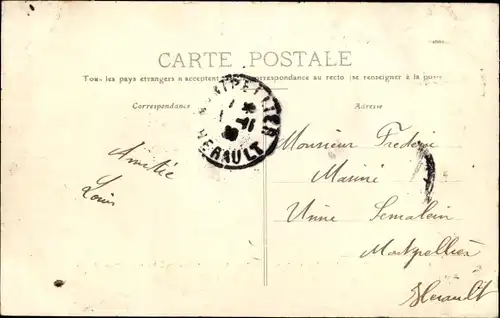 CARTE POSTALE
Tous les pays étrangers n'acceptent correspondance au recto (se renseigner à la poste
Correspondance
Adresse
MONTPELLIER
HÉRAULT
Amitié
Louis
Monsieur Frederic
Mariné
Semalein
Montpellier
Herault